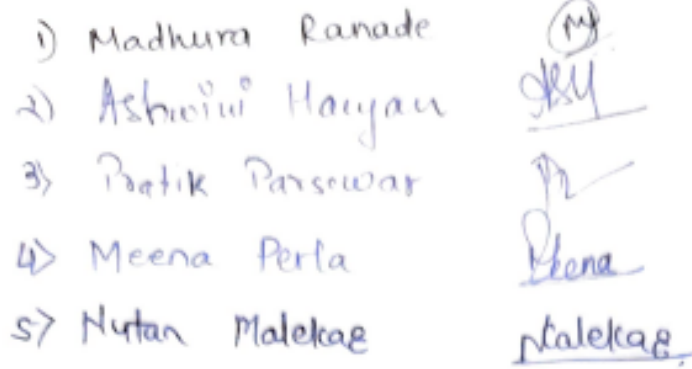 1) Madhura Ranade
2) Ashwini Haryan
3) Pratik Parsewar
4) Meena Perla
5) Nutan Malekar Malekar